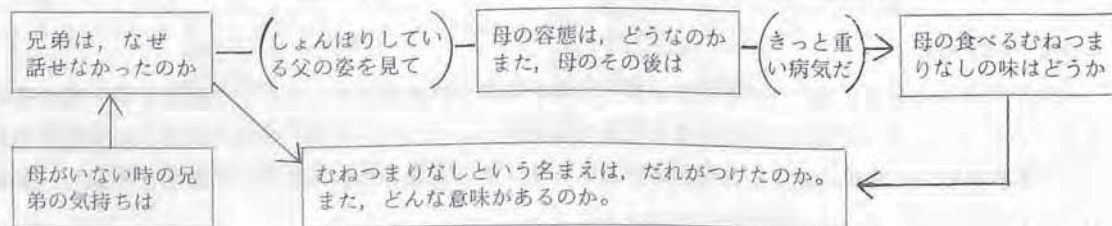 兄弟は，なぜ
話せなかったのか
しょんぼりしてい
る父の姿を見て
母の容態は，どうなのか
また，母のその後は
きっと重
い病気だ
母の食べるむねつま
りなしの味はどうか
母がいない時の兄
弟の気持ちは
むねつまりなしという名まえは，だれがつけたのか。
また，どんな意味があるのか。